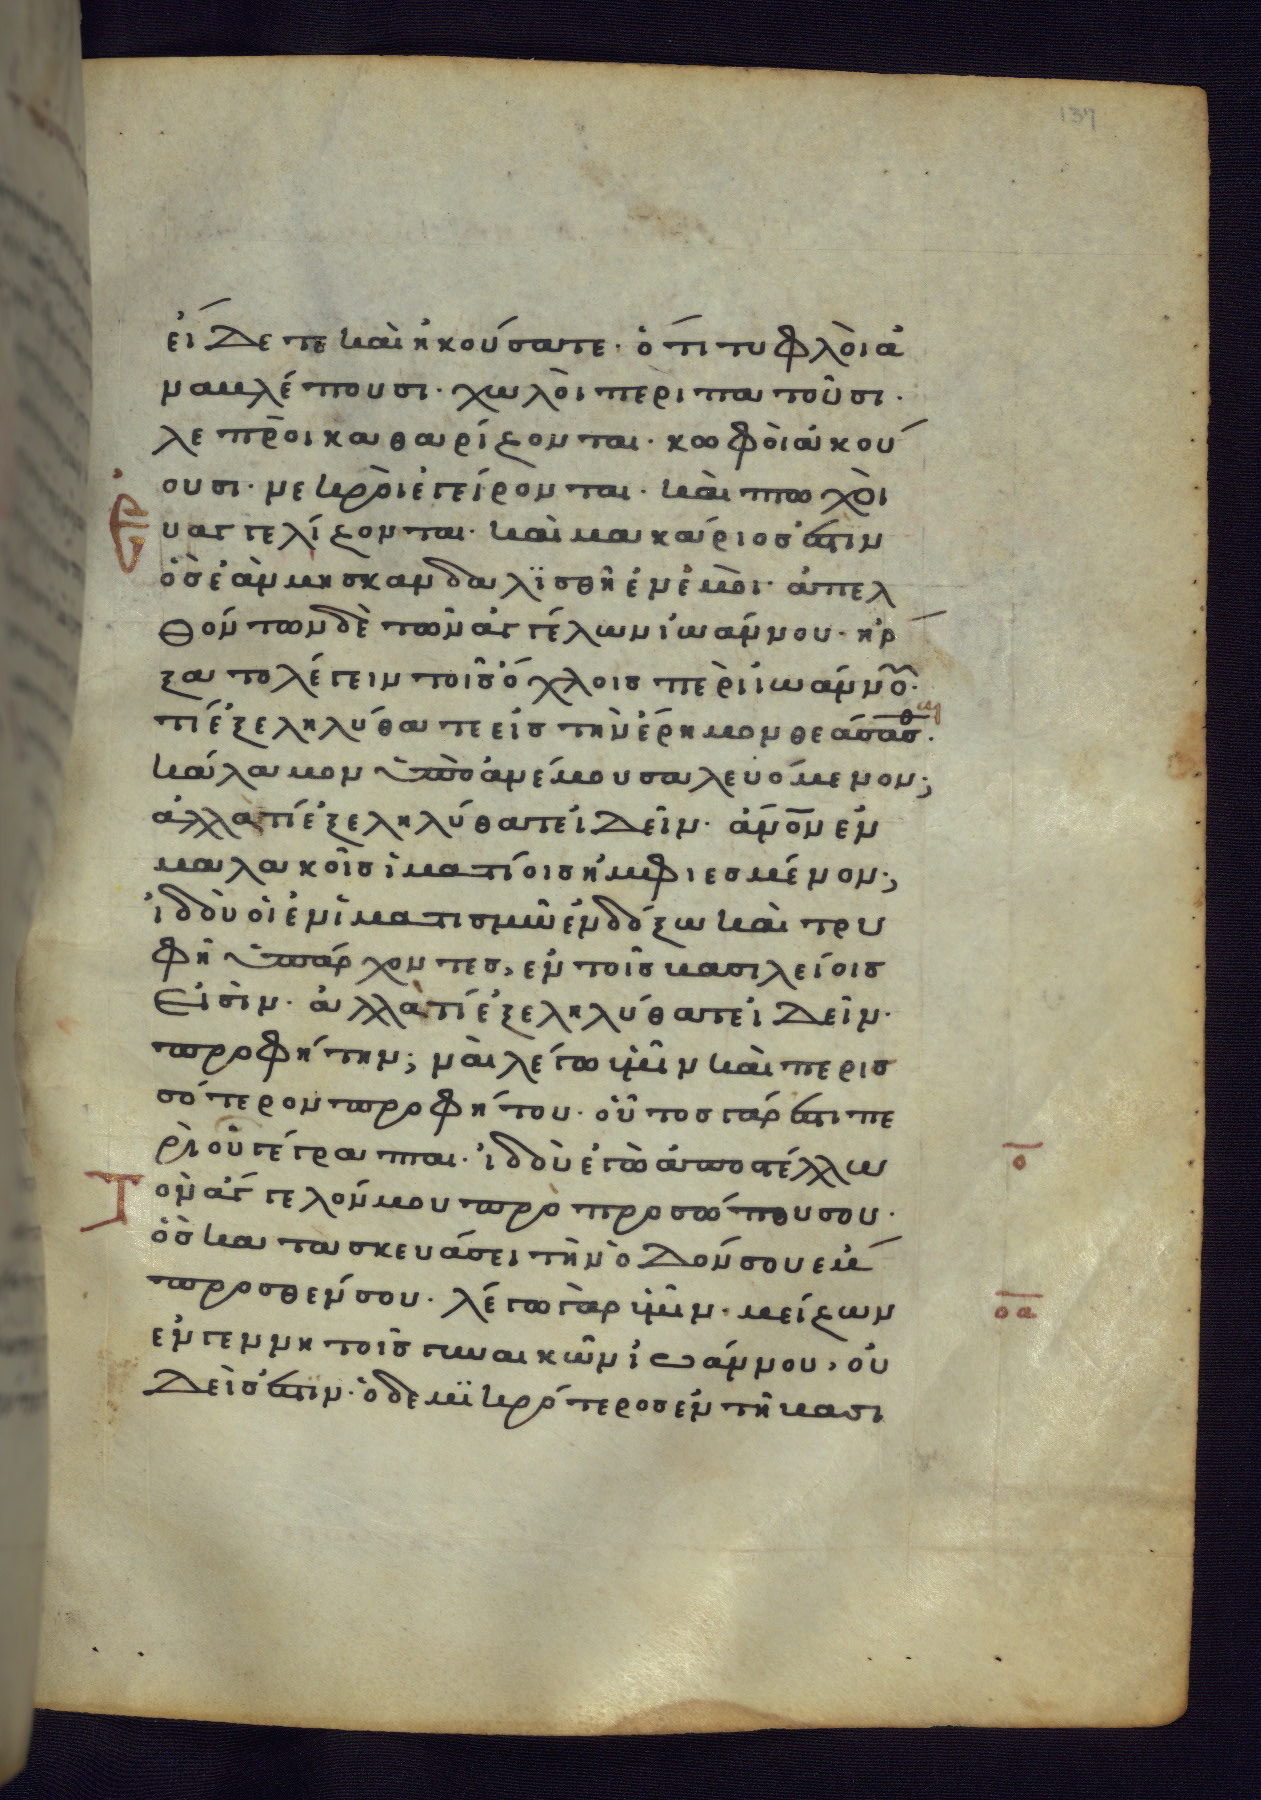 137
εἴδετε καὶ ἠκούσατε· ὅτι τυφλοὶ ἀ
ναβλέπουσι· χωλοὶ περιπατοῦσι·
λεπροὶ καθαρίζονται· κωφοὶ ἀκού
ουσι· νεκροὶ ἐγείρονται· καὶ πτωχοὶ
Ἐυαγγελίζονται· καὶ μακάριος ἐστιν
ὃς ἐὰν μη σκανδαλϊσθῆ ἐν ἐμοί· ἀπελ
θόντων δὲ τῶν ἀγγέλων ἰωάννου· ἤρ
ξατο λέγειν τοῖς ὄχλοις περὶ ἰωάννου·
τί ἐξεληλύθατε εἰς τὴν ἔρημον θεάσασθαι·
κάλαμον ὑπὸ ἀνέμου σαλευόμενον;
ἀλλὰ τί ἐξεληλύθατε ἰδεῖν· ἄνον ἐν
μαλακοῖς ἱματίοις ἠμφιεσμένον;
ἰδοὺ οἱ ἐν ἱματισμῶ ἐνδόξω καὶ τρυ
φῆ ὑπάρχοντες, ἐν τοῖς βασιλείοις
εἰσὶν· ἀλλὰ τί ἐξεληλύθατε ἰδεῖν·
προφήτην; ναὶ λέγω ὑμῖν καὶ περισ
σότερον προφήτου· οὗτος γάρ ἐστι πε
ρὶ οὗ γέγραπται· ἰδοὺ ἐγὼ ἀποστέλλω ο̅
Τὸν ἄγγελόν μου πρὸ προσώπου σου·
ὃς κατασκευάσει τὴν ὁδόν σου ἔμ
προσθέν σου· λέγω γὰρ ὑμῖν· μείζων ο̅α̅
ἐν γεννητοῖς γυναικῶν ἰωάννου, οὐ
δείς ἐστιν· ὁ δε μϊκρότερος ἐν τῆ βασι